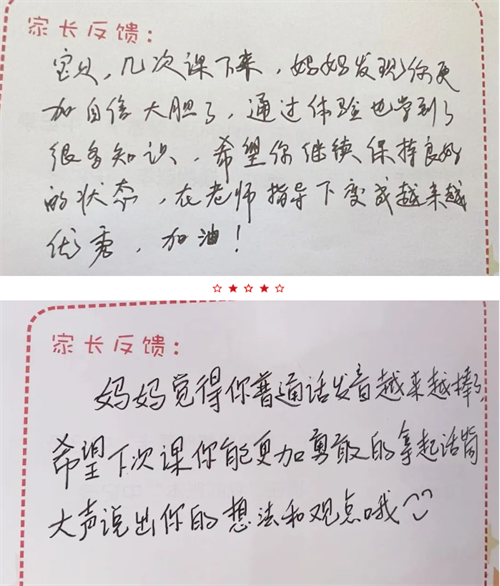 家长反馈：
宝贝，几次课下来，妈妈发现你更
加自信大胆了，通过体验也学到了
很多知识，希望你继续保持良好
的状态，在老师指导下变成越来越
优秀，加油！
家长反馈：
妈妈觉得你普通话发音越来越棒，
希望下次课你能更加勇敢的拿起话筒
大声说出你的想法和观点哦